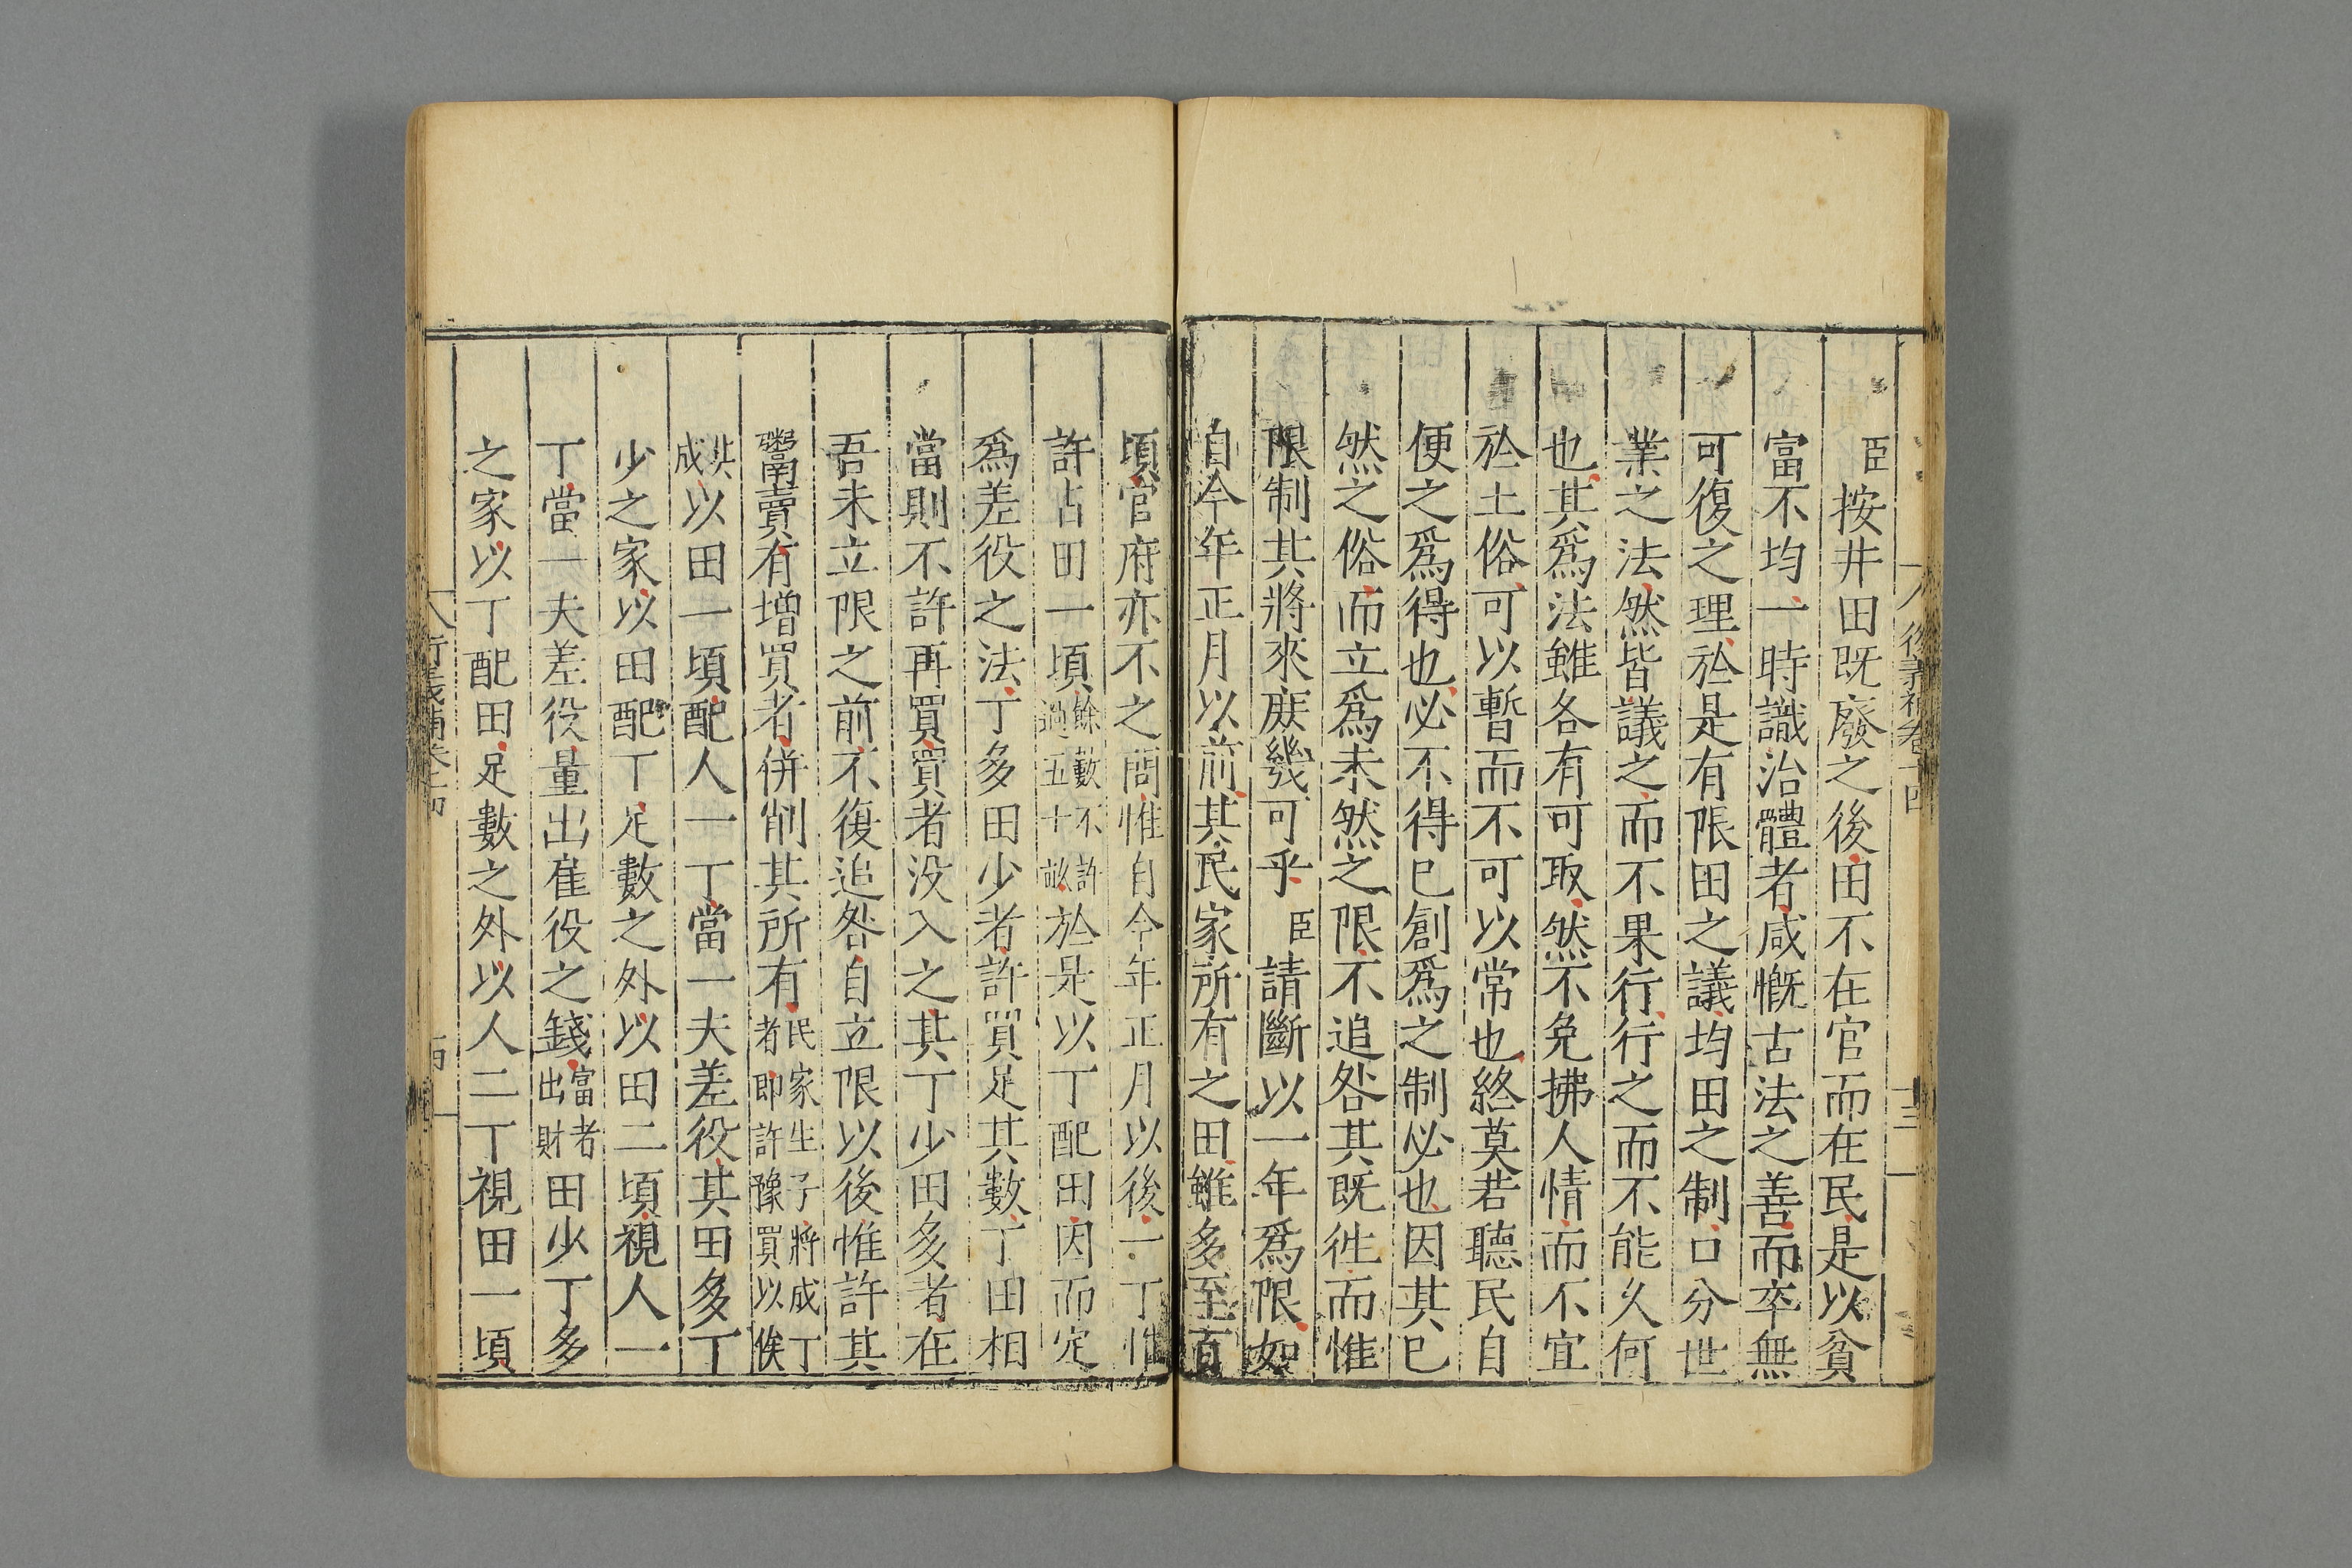 臣按井田既廢之後田不在官而在民是以貧
富不均一時識治體者咸慨古法之善而卒無
可復之理於是有限田之議均田之制口分世
業之法然皆議之而不果行行之而不能久何
也其爲法雖各有可取然不免拂人情而不宜
於土俗可以暫而不可以常也終莫若聽民自
便之爲得也必不得已創爲之制必也因其已
然之俗而立爲未然之限不追咎其既徃而惟
限制其將來庶幾可乎臣請斷以一年爲限如
自今年正月以前其民家所有之田雖多至百
頃官府亦不之問惟自今年正月以後一丁惟
許占田一頃餘數不許過五十畝於是以丁配田因而定
爲差役之法丁多田少者許買足其數丁田相
當則不許再買買者没入之其丁少田多者在
吾未立限之前不復追咎自立限以後惟許其
鬻賣有增買者併削其所有民家生子將成丁者即許豫買以俟
其成以田一頃配人一丁當一夫差役其田多丁
少之家以田配丁足數之外以田二頃視人一
丁當一夫差役量出雇役之錢富者出財田少丁多
之家以丁配田足數之外以人二丁視田一頃